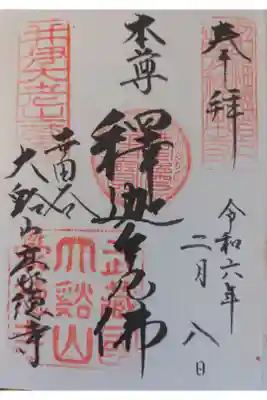 奉拝
令和六年
二月八日
本尊
釋迦牟尼佛
世田谷
大谿山豪徳寺
武蔵國
大谿山
豪徳寺